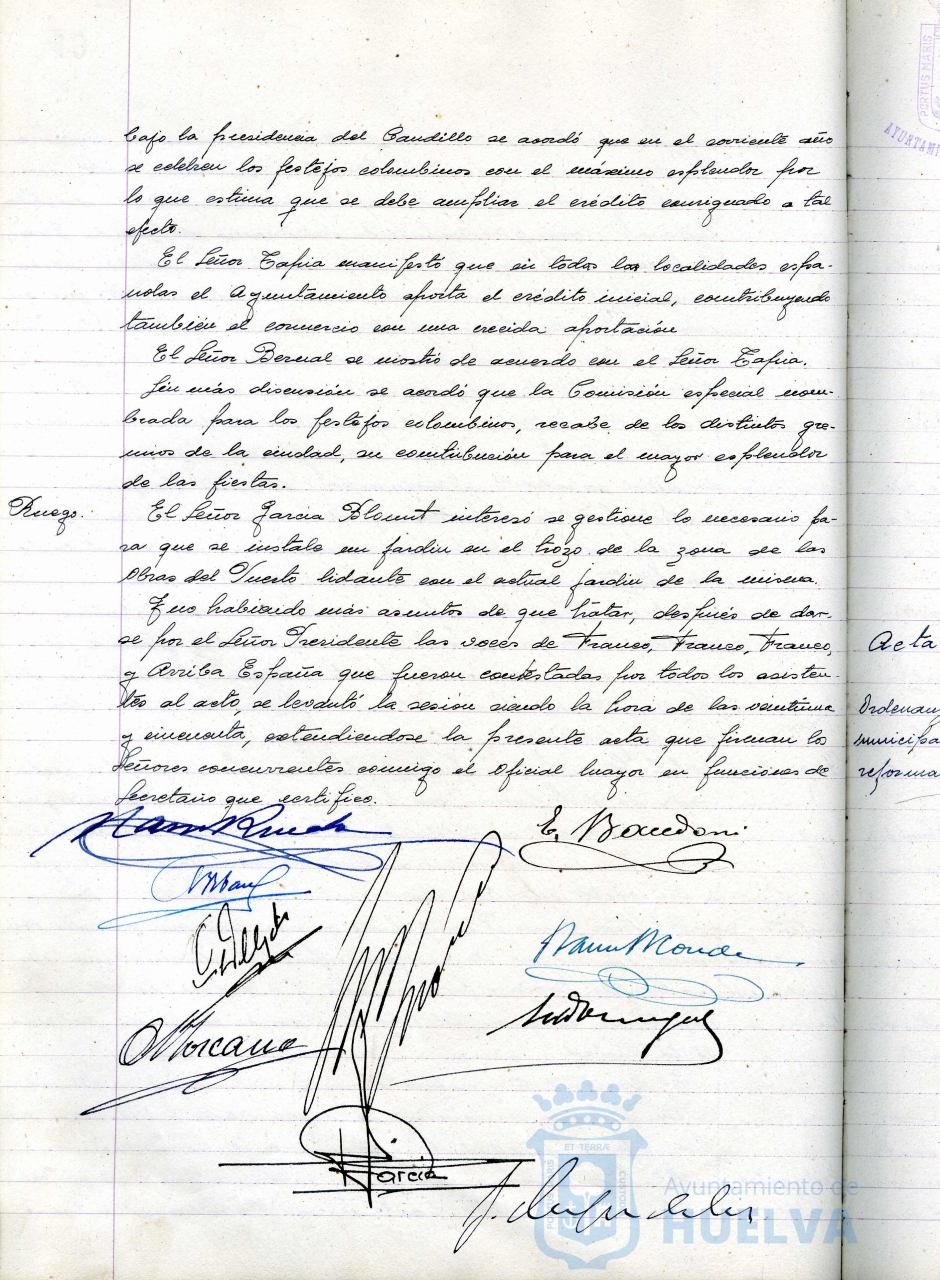 bajo la presidencia del Caudillo se acordó que en el corriente año
se celebren los festejos colombinos con el máximo esplendor por
lo que estima que se debe ampliar el crédito consignado a tal
efecto.
El Señor Tapia manifestó que en todas las localidades espa-
ñolas el Ayuntamiento aporta el crédito inicial, contribuyendo
también el comercio con una crecida aportación
El Señor Bernal se mostró de acuerdo con el Señor Tapia.
Sin más discusión se acordó que la Comisión especial nom-
brada para los festejos colombinos, recabe de los distintos gre-
mios de la ciudad, su contribución para el mayor esplendor
de las fiestas.
Ruego.
El Señor Garcia Blount interesó se gestione lo necesario pa-
ra que se instale un jardin en el trozo de la zona de las
Obras del Puerto lidante con el actual jardin de la misma.
Y no habiendo más asuntos de que tratar, después de dar-
se por el Señor Presidente las voces de Franco, Franco, Franco,
y Arriba España que fueron contestadas por todos los asisten-
tes al acto, se levantó la sesión siendo la hora de las veintiuna
y cincuenta, extendiendose la presente acta que firman los
Señores concurrentes conmigo el Oficial Mayor en funciones de
Secretario que certifico.
E.
Garcia
Acta
Ordenan
municipa
reforma
PORTUS MARIS
AYUNTAMI
ET TERRÆ
Ayuntamiento de
HUELVA